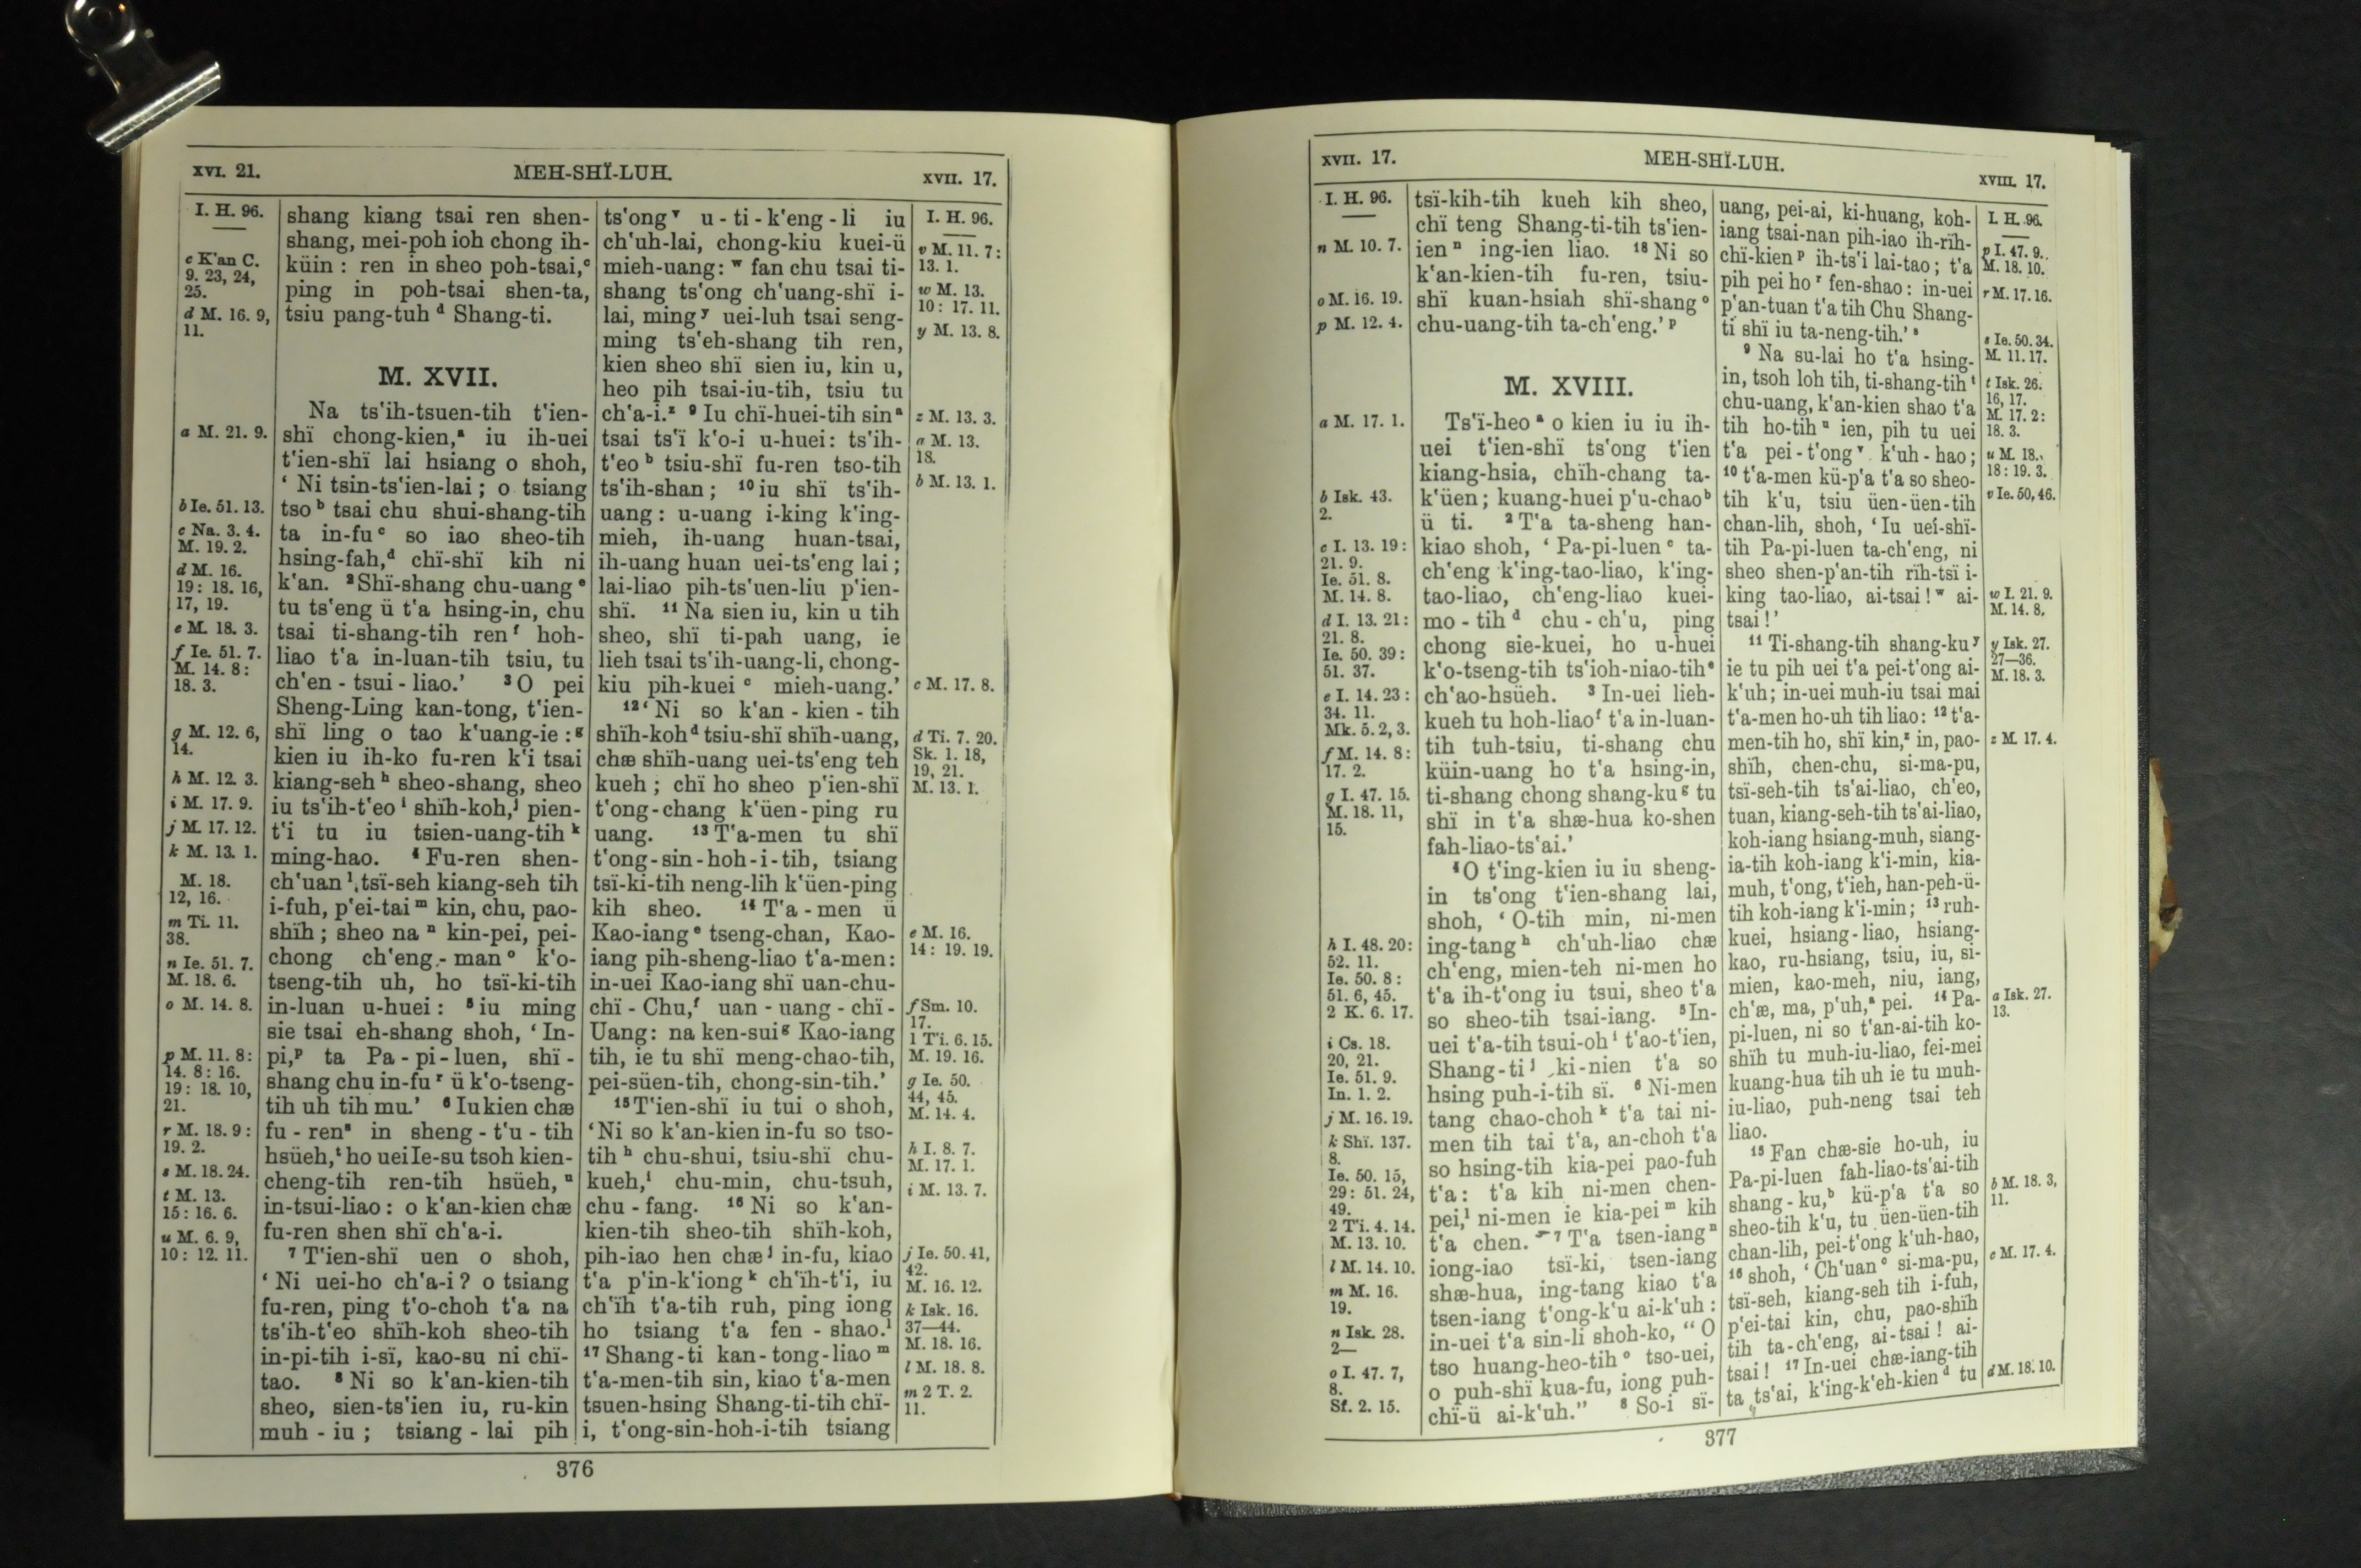 XVI. 21.
MEH-SHÏ-LUH.
XVII. 17.
I. H. 96.
c K'an C.
9. 23, 24,
25.
d M. 16. 9,
11.
a M. 21. 9.
b Ie. 51. 13.
c Na. 3. 4.
M. 19. 2.
d M. 16.
19: 18. 16,
17, 19.
e M. 18. 3.
f Ie. 51. 7.
M. 14. 8:
18. 3.
g M. 12. 6,
14.
h M. 12. 3.
i M. 17. 9.
j M. 17. 12.
k M. 13. 1.
M. 18.
12, 16.
m Ti. 11.
38.
n Ie. 51. 7.
M. 18. 6.
o M. 14. 8.
p M. 11. 8:
14. 8: 16.
19: 18. 10,
21.
r M. 18. 9:
19. 2.
s M. 18. 24.
t M. 13.
15: 16. 6.
u M. 6. 9,
10: 12. 11.
shang kiang tsai ren shen-
shang, mei-poh ioh chong ih-
küin : ren in sheo poh-tsai,c
ping in poh-tsai shen-ta,
tsiu pang-tuh d Shang-ti.
M. XVII.
Na ts'ih-tsuen-tih t'ien-
shï chong-kien,a iu ih-uei
t'ien-shï lai hsiang o shoh,
‘ Ni tsin-ts'ien-lai ; o tsiang
tso b tsai chu shui-shang-tih
ta in-fu c so iao sheo-tih
hsing-fah,d chï-shï kih ni
k'an. 2 Shï-shang chu-uang e
tu ts'eng ü t'a hsing-in, chu
tsai ti-shang-tih ren f hoh-
liao t'a in-luan-tih tsiu, tu
ch'en - tsui - liao.’ 3 O pei
Sheng-Ling kan-tong, t'ien-
shï ling o tao k'uang-ie : g
kien iu ih-ko fu-ren k'i tsai
kiang-seh h sheo-shang, sheo
iu ts'ih-t'eo i shïh-koh,j pien-
t'i tu iu tsien-uang-tih k
ming-hao. 4 Fu-ren shen-
ch'uan l tsï-seh kiang-seh tih
i-fuh, p'ei-tai m kin, chu, pao-
shïh ; sheo na n kin-pei, pei-
chong ch'eng - man o k'o-
tseng-tih uh, ho tsï-ki-tih
in-luan u-huei : 5 iu ming
sie tsai eh-shang shoh, ‘ In-
pi,p ta Pa - pi - luen, shï -
shang chu in-fu r ü k'o-tseng-
tih uh tih mu.’ 6 Iu kien chæ
fu - ren s in sheng - t'u - tih
hsüeh,t ho uei Ie-su tsoh kien-
cheng-tih ren-tih hsüeh, u
in-tsui-liao : o k'an-kien chæ
fu-ren shen shï ch'a-i.
7 T'ien-shï uen o shoh,
‘ Ni uei-ho ch'a-i ? o tsiang
fu-ren, ping t'o-choh t'a na
ts'ih-t'eo shïh-koh sheo-tih
in-pi-tih i-sï, kao-su ni chï-
tao. 8 Ni so k'an-kien-tih
sheo, sien-ts'ien iu, ru-kin
muh - iu ; tsiang - lai pih
ts'ong v u - ti - k'eng - li iu
ch'uh-lai, chong-kiu kuei-ü
mieh-uang : w fan chu tsai ti-
shang ts'ong ch'uang-shï i-
lai, ming y uei-luh tsai seng-
ming ts'eh-shang tih ren,
kien sheo shï sien iu, kin u,
heo pih tsai-iu-tih, tsiu tu
ch'a-i.z 9 Iu chï-huei-tih sin a
tsai ts'ï k'o-i u-huei : ts'ih-
t'eo b tsiu-shï fu-ren tso-tih
ts'ih-shan ; 10 iu shï ts'ih-
uang : u-uang i-king k'ing-
mieh, ih-uang huan-tsai,
ih-uang huan uei-ts'eng lai ;
lai-liao pih-ts'uen-liu p'ien-
shï. 11 Na sien iu, kin u tih
sheo, shï ti-pah uang, ie
lieh tsai ts'ih-uang-li, chong-
kiu pih-kuei c mieh-uang.’
12 ‘ Ni so k'an - kien - tih
shïh-koh d tsiu-shï shïh-uang,
chæ shïh-uang uei-ts'eng teh
kueh ; chï ho sheo p'ien-shï
t'ong-chang k'üen-ping ru
uang. 13 T'a-men tu shï
t'ong-sin-hoh-i-tih, tsiang
tsï-ki-tih neng-lih k'üen-ping
kih sheo. 14 T'a - men ü
Kao-iang e tseng-chan, Kao-
iang pih-sheng-liao t'a-men :
in-uei Kao-iang shï uan-chu-
chï - Chu,f uan - uang - chï -
Uang : na ken-sui g Kao-iang
tih, ie tu shï meng-chao-tih,
pei-süen-tih, chong-sin-tih.’
15 T'ien-shï iu tui o shoh,
‘Ni so k'an-kien in-fu so tso-
tih h chu-shui, tsiu-shï chu-
kueh,i chu-min, chu-tsuh,
chu - fang. 16 Ni so k'an-
kien-tih sheo-tih shïh-koh,
pih-iao hen chæ j in-fu, kiao
t'a p'in-k'iong k ch'ïh-t'i, iu
ch'ïh t'a-tih ruh, ping iong
ho tsiang t'a fen - shao.l
17 Shang-ti kan-tong-liao m
t'a-men-tih sin, kiao t'a-men
tsuen-hsing Shang-ti-tih chï-
i, t'ong-sin-hoh-i-tih tsiang
I. H. 96.
v M. 11. 7:
13. 1.
w M. 13.
10: 17. 11.
y M. 13. 8.
z M. 13. 3.
a M. 13.
18.
b M. 13. 1.
c M. 17. 8.
d Ti. 7. 20.
Sk. 1. 18,
19, 21.
M. 13. 1.
e M. 16.
14: 19. 19.
f Sm. 10.
17.
1 T'i. 6. 15.
M. 19. 16.
g Ie. 50.
44, 45.
M. 14. 4.
h I. 8. 7.
M. 17. 1.
i M. 13. 7.
j Ie. 50. 41,
42.
M. 16. 12.
k Isk. 16.
37—44.
M. 18. 16.
l M. 18. 8.
m 2 T. 2.
11.
376
XVII. 17.
MEH-SHÏ-LUH.
XVIII. 17.
I. H. 96.
n M. 10. 7.
o M. 16. 19.
p M. 12. 4.
a M. 17. 1.
b Isk. 43.
2.
c I. 13. 19:
21. 9.
Ie. 51. 8.
M. 14. 8.
d I. 13. 21:
21. 8.
Ie. 50. 39:
51. 37.
e I. 14. 23:
34. 11.
Mk. 5. 2, 3.
f M. 14. 8:
17. 2.
g I. 47. 15.
M. 18. 11,
15.
h I. 48. 20:
52. 11.
Ie. 50. 8:
51. 6, 45.
2 K. 6. 17.
i Cs. 18.
20, 21.
Ie. 51. 9.
In. 1. 2.
j M. 16. 19.
k Shï. 137.
8.
Ie. 50. 15,
29: 51. 24,
49.
2 T'i. 4. 14.
M. 13. 10.
l M. 14. 10.
m M. 16.
19.
n Isk. 28.
2—
o I. 47. 7,
8.
Sf. 2. 15.
tsï-kih-tih kueh kih sheo,
chï teng Shang-ti-tih ts'ien-
ien n ing-ien liao. 18 Ni so
k'an-kien-tih fu-ren, tsiu-
shï kuan-hsiah shï-shang o
chu-uang-tih ta-ch'eng.’ p
M. XVIII.
Ts'ï-heo a o kien iu iu ih-
uei t'ien-shï ts'ong t'ien
kiang-hsia, chïh-chang ta-
k'üen ; kuang-huei p'u-chao b
ü ti. 2 T'a ta-sheng han-
kiao shoh, ‘ Pa-pi-luen c ta-
ch'eng k'ing-tao-liao, k'ing-
tao-liao, ch'eng-liao kuei-
mo - tih d chu - ch'u, ping
chong sie-kuei, ho u-huei
k'o-tseng-tih ts'ioh-niao-tih e
ch'ao-hsüeh. 3 In-uei lieh-
kueh tu hoh-liao f t'a in-luan-
tih tuh-tsiu, ti-shang chu
küin-uang ho t'a hsing-in,
ti-shang chong shang-ku g tu
shï in t'a shæ-hua ko-shen
fah-liao-ts'ai.’
4 O t'ing-kien iu iu sheng-
in ts'ong t'ien-shang lai,
shoh, ‘ O-tih min, ni-men
ing-tang h ch'uh-liao chæ
ch'eng, mien-teh ni-men ho
t'a ih-t'ong iu tsui, sheo t'a
so sheo-tih tsai-iang. 5 In-
uei t'a-tih tsui-oh i t'ao-t'ien,
Shang-ti j ki-nien t'a so
hsing puh-i-tih sï. 6 Ni-men
tang chao-choh k t'a tai ni-
men tih tai t'a, an-choh t'a
so hsing-tih kia-pei pao-fuh
t'a : t'a kih ni-men chen-
pei,l ni-men ie kia-pei m kih
t'a chen. 7 T'a tsen-iang n
iong-iao tsï-ki, tsen-iang
shæ-hua, ing-tang kiao t'a
tsen-iang t'ong-k'u ai-k'uh :
in-uei t'a sin-li shoh-ko, “ O
tso huang-heo-tih o tso-uei,
o puh-shï kua-fu, iong puh-
chï-ü ai-k'uh.” 8 So-i sï-
uang, pei-ai, ki-huang, koh-
iang tsai-nan pih-iao ih-rïh-
chï-kien p ih-ts'i lai-tao ; t'a
pih pei ho r fen-shao : in-uei
p'an-tuan t'a tih Chu Shang-
ti shï iu ta-neng-tih.’ s
9 Na su-lai ho t'a hsing-
in, tsoh loh tih, ti-shang-tih t
chu-uang, k'an-kien shao t'a
tih ho-tih u ien, pih tu uei
t'a pei - t'ong v k'uh - hao ;
10 t'a-men kü-p'a t'a so sheo-
tih k'u, tsiu üen-üen-tih
chan-lih, shoh, ‘ Iu uei-shï-
tih Pa-pi-luen ta-ch'eng, ni
sheo shen-p'an-tih rïh-tsï i-
king tao-liao, ai-tsai ! w ai-
tsai !’
11 Ti-shang-tih shang-ku y
ie tu pih uei t'a pei-t'ong ai-
k'uh ; in-uei muh-iu tsai mai
t'a-men ho-uh tih liao : 12 t'a-
men-tih ho, shï kin,z in, pao-
shïh, chen-chu, si-ma-pu,
tsï-seh-tih ts'ai-liao, ch'eo,
tuan, kiang-seh-tih ts'ai-liao,
koh-iang hsiang-muh, siang-
ia-tih koh-iang k'i-min, kia-
muh, t'ong, t'ieh, han-peh-ü-
tih koh-iang k'i-min ; 13 ruh-
kuei, hsiang-liao, hsiang-
kao, ru-hsiang, tsiu, iu, si-
mien, kao-meh, niu, iang,
ch'æ, ma, p'uh,a pei. 14 Pa-
pi-luen, ni so t'an-ai-tih ko-
shïh tu muh-iu-liao, fei-mei
kuang-hua tih uh ie tu muh-
iu-liao, puh-neng tsai teh
liao.
15 Fan chæ-sie ho-uh, iu
Pa-pi-luen fah-liao-ts'ai-tih
shang - ku,b kü-p'a t'a so
sheo-tih k'u, tu üen-üen-tih
chan-lih, pei-t'ong k'uh-hao,
16 shoh, ‘ Ch'uan c si-ma-pu,
tsï-seh, kiang-seh tih i-fuh,
p'ei-tai kin, chu, pao-shïh
tih ta-ch'eng, ai-tsai ! ai-
tsai ! 17 In-uei chæ-iang-tih
ta ts'ai, k'ing-k'eh-kien d tu
I. H. 96.
p I. 47. 9.
M. 18. 10.
r M. 17. 16.
s Ie. 50. 34.
M. 11. 17.
t Isk. 26.
16, 17.
M. 17. 2:
18. 3.
u M. 18.
18: 19. 3.
v Ie. 50, 46.
w I. 21. 9.
M. 14. 8.
y Isk. 27.
27—36.
M. 18. 3.
z M. 17. 4.
a Isk. 27.
13.
b M. 18. 3,
11.
c M. 17. 4.
d M. 18. 10.
377